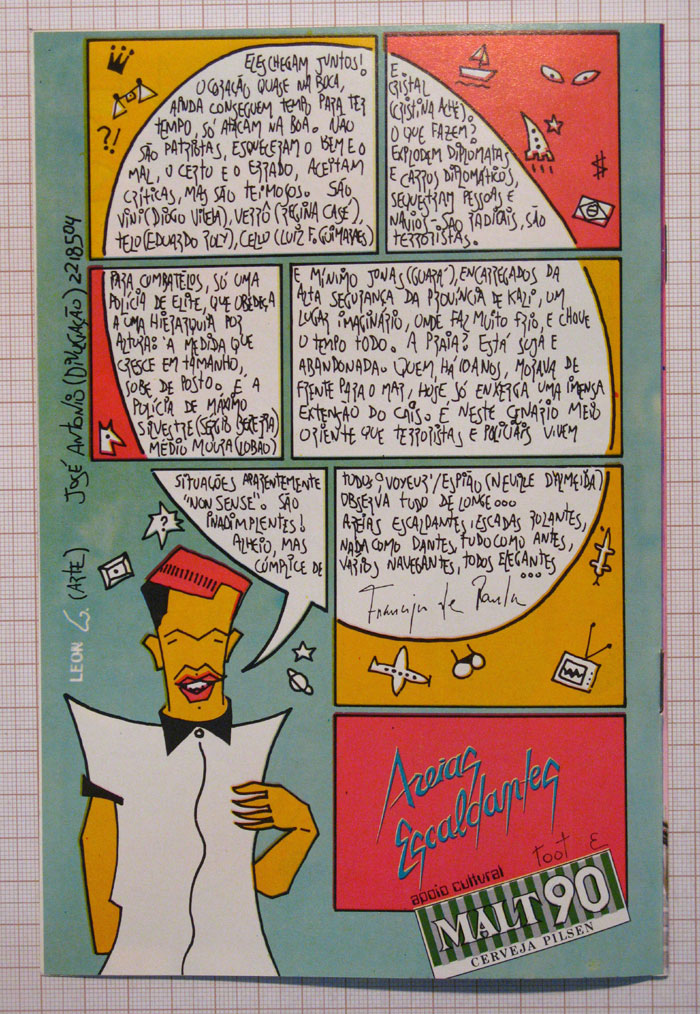 ELES CHEGAM JUNTOS!
O CORAÇÃO QUASE NA BOCA,
AINDA CONSEGUEM TEMPO, PARA TER
TEMPO, SÓ ATACAM NA BOA. NÃO
SÃO PATRISTAS, ESQUECERAM O BEM E O
MAL, O CERTO E O ERRADO, ACEITAM
CRÍTICAS, MAS SÃO TEIMOSOS. SÃO
VINI (DIOGO VILELA), VERRÔ (REGINA CASÉ),
TELO (EDUARDO POLY), CELLO (LUIZ F. GUIMARÃES)
E
CRISTAL
(CRISTINA ACHÉ).
O QUE FAZEM?
EXPLODEM DIPLOMATAS
E CARROS DIPLOMÁTICOS,
SEQUESTRAM PESSOAS E
NAVIO - SÃO RADICAIS, SÃO
TERRORISTAS.
PARA COMBATÊLOS, SÓ UMA
POLÍCIA DE ELITE, QUE OBEDEÇA
A UMA HIERARQUIA POR
ALTURA: A MEDIDA QUE
CRESCE EM TAMANHO,
SOBE DE POSTO. E A
POLÍCIA DE MÁXIMO
SILVESTRE (SÉRGIO BEZERRA)
MÉDIO MOURA (LOBÃO)
E MÍNIMO JONAS (GUARÁ), ENCARREGADOS DA
ALTA SEGURANÇA DA PROVÍNCIA DE KALI, UM
LUGAR IMAGINÁRIO, ONDE FAZ MUITO FRIO, E CHOVE
O TEMPO TODO. A PRAIA? ESTÁ SUJA E
ABANDONADA. QUEM HÁ 10 ANOS, MORAVA DE
FRENTE PARA O MAR, HOJE SÓ ENXERGA UMA IMENSA
EXTENÇÃO DO CAIS. E NESTE CENÁRIO MEIO
ORIENTE QUE TERRORISTAS E POLICIAIS VIVEM
SITUAÇÕES APARENTEMENTE
"NON SENSE". SÃO
INADIMPLENTES!
ALHEIO, MAS
CÚMPLICE DE
TUDO: O VOYEUR/ESPIÃO (NEVILLE D'ALMEIDA)
OBSERVA TUDO DE LONGE...
AREIAS ESCALDANTES, ESCADAS ROLANTES,
NADA COMO DANTES, TUDO COMO ANTES,
VÁRIOS NAVEGANTES, TODOS ELEGANTES
...
Francisco de Paula
?!
$
JOSÉ ANTONIO (DIVULGAÇÃO) 2218504
LEON (ARTE)
Areias
Escaldantes
apoio cultural
MALT 90
CERVEJA PILSEN